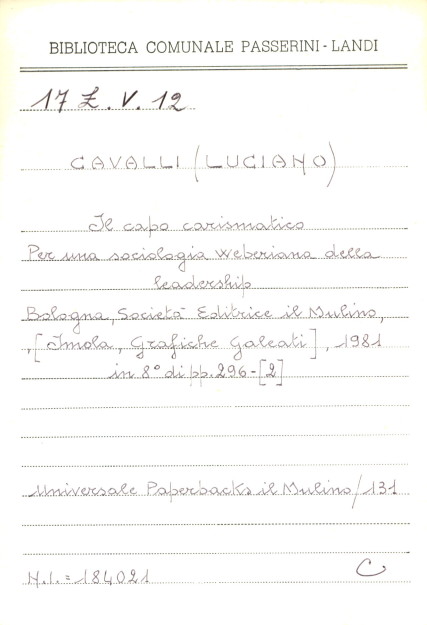 BIBLIOTECA COMUNALE PASSERINI-LANDI
17 Z. V. 12
CAVALLI (LUCIANO)
Il capo carismatico
Per una sociologia Weberiana della
leadership
Bologna, Società Editrice il Mulino,
,[Imola, Grafiche Galeati], 1981
in 8° di pp. 296-[2]
Universale Paperbacks il Mulino/131
N.I. = 184021
C